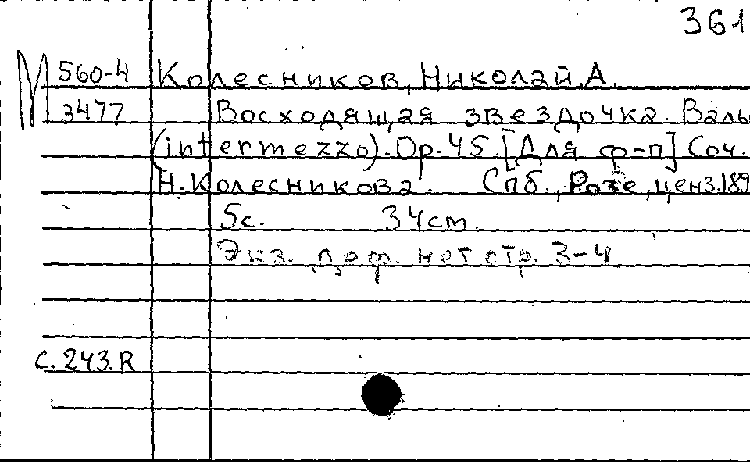 361
М 560-4 Колесников, Николай А.
3477 Восходящая звездочка. Валь
(intermezzo). Op. 45. [Для ф-п] Соч.
Н. Колесникова. Спб., Розе, ценз.189
5с. 34см.
Экз. деф. нет стр. 3-4
с. 243.R